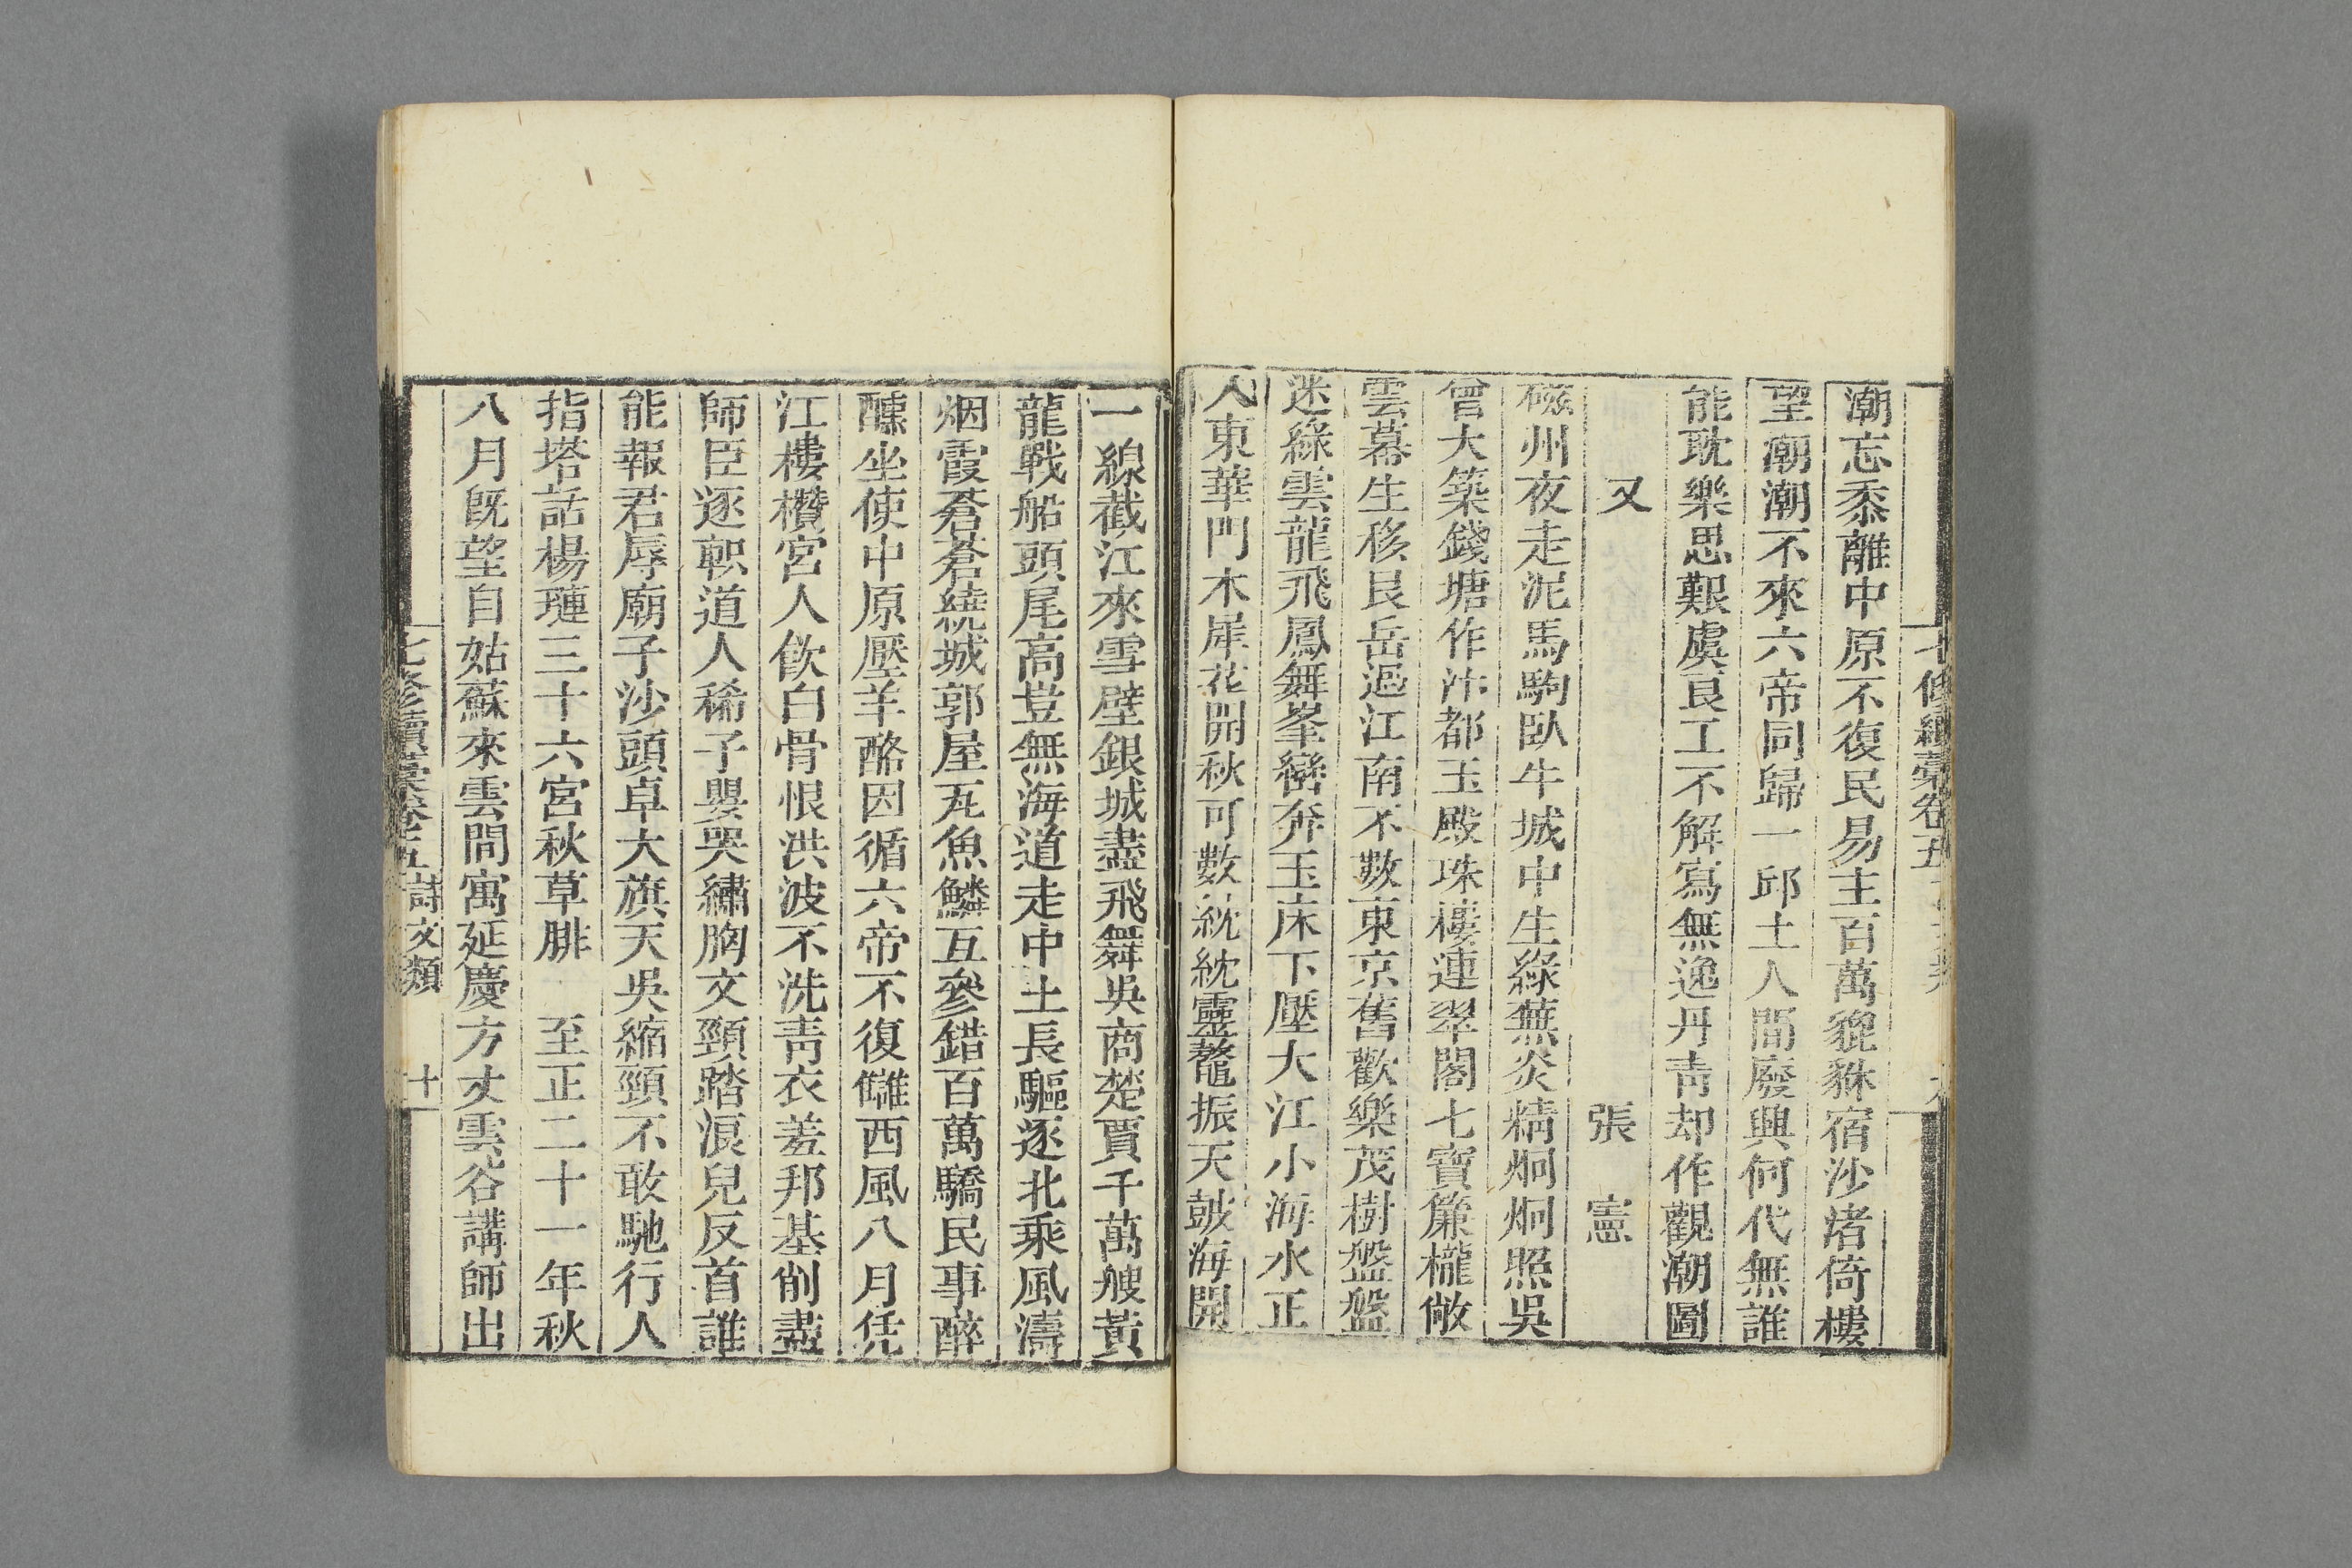 七修續藁卷五
潮忘黍離中原不復民易主百萬貔貅宿沙渚倚樓
望潮潮不來六帝同歸一邱土人間廢興何代無誰
能耽樂思艱虞良工不解寫無逸丹靑却作觀潮圖
又 張憲
磁州夜走泥馬駒臥牛城中生綠蕪炎精炯炯照吳
曾大築錢塘作汴都玉殿珠樓連翠閣七寶簾櫳敞
雲幕生移艮岳過江南不數東京舊歡樂茂樹盤盤
迷綠雲龍飛鳳舞峯巒奔玉床下壓大江小海水正
入東華門木犀花開秋可數紞紞靈鼇振天鼓海開
一線截江來雪壁銀城盡飛舞吳商楚賈千萬艘黃
龍戰船頭尾高豈無海道走中土長驅逐北乘風濤
烟霞蒼蒼繞城郭屋瓦魚鱗互參錯百萬驕民事醉
醺坐使中原壓羊酪因循六帝不復讎西風八月凭
江樓欑宮人飲白骨恨洪波不洗靑衣羞邦基削盡
師臣逐軹道人稀子嬰哭繡胸文頸踏浪兒反首誰
能報君辱廟子沙頭卓大旗天吳縮頸不敢馳行人
指塔話楊璉三十六宮秋草腓 至正二十一年秋
八月旣望自姑蘇來雲間寓延慶方丈雲谷講師出
七修續藁卷五 詩文類 十